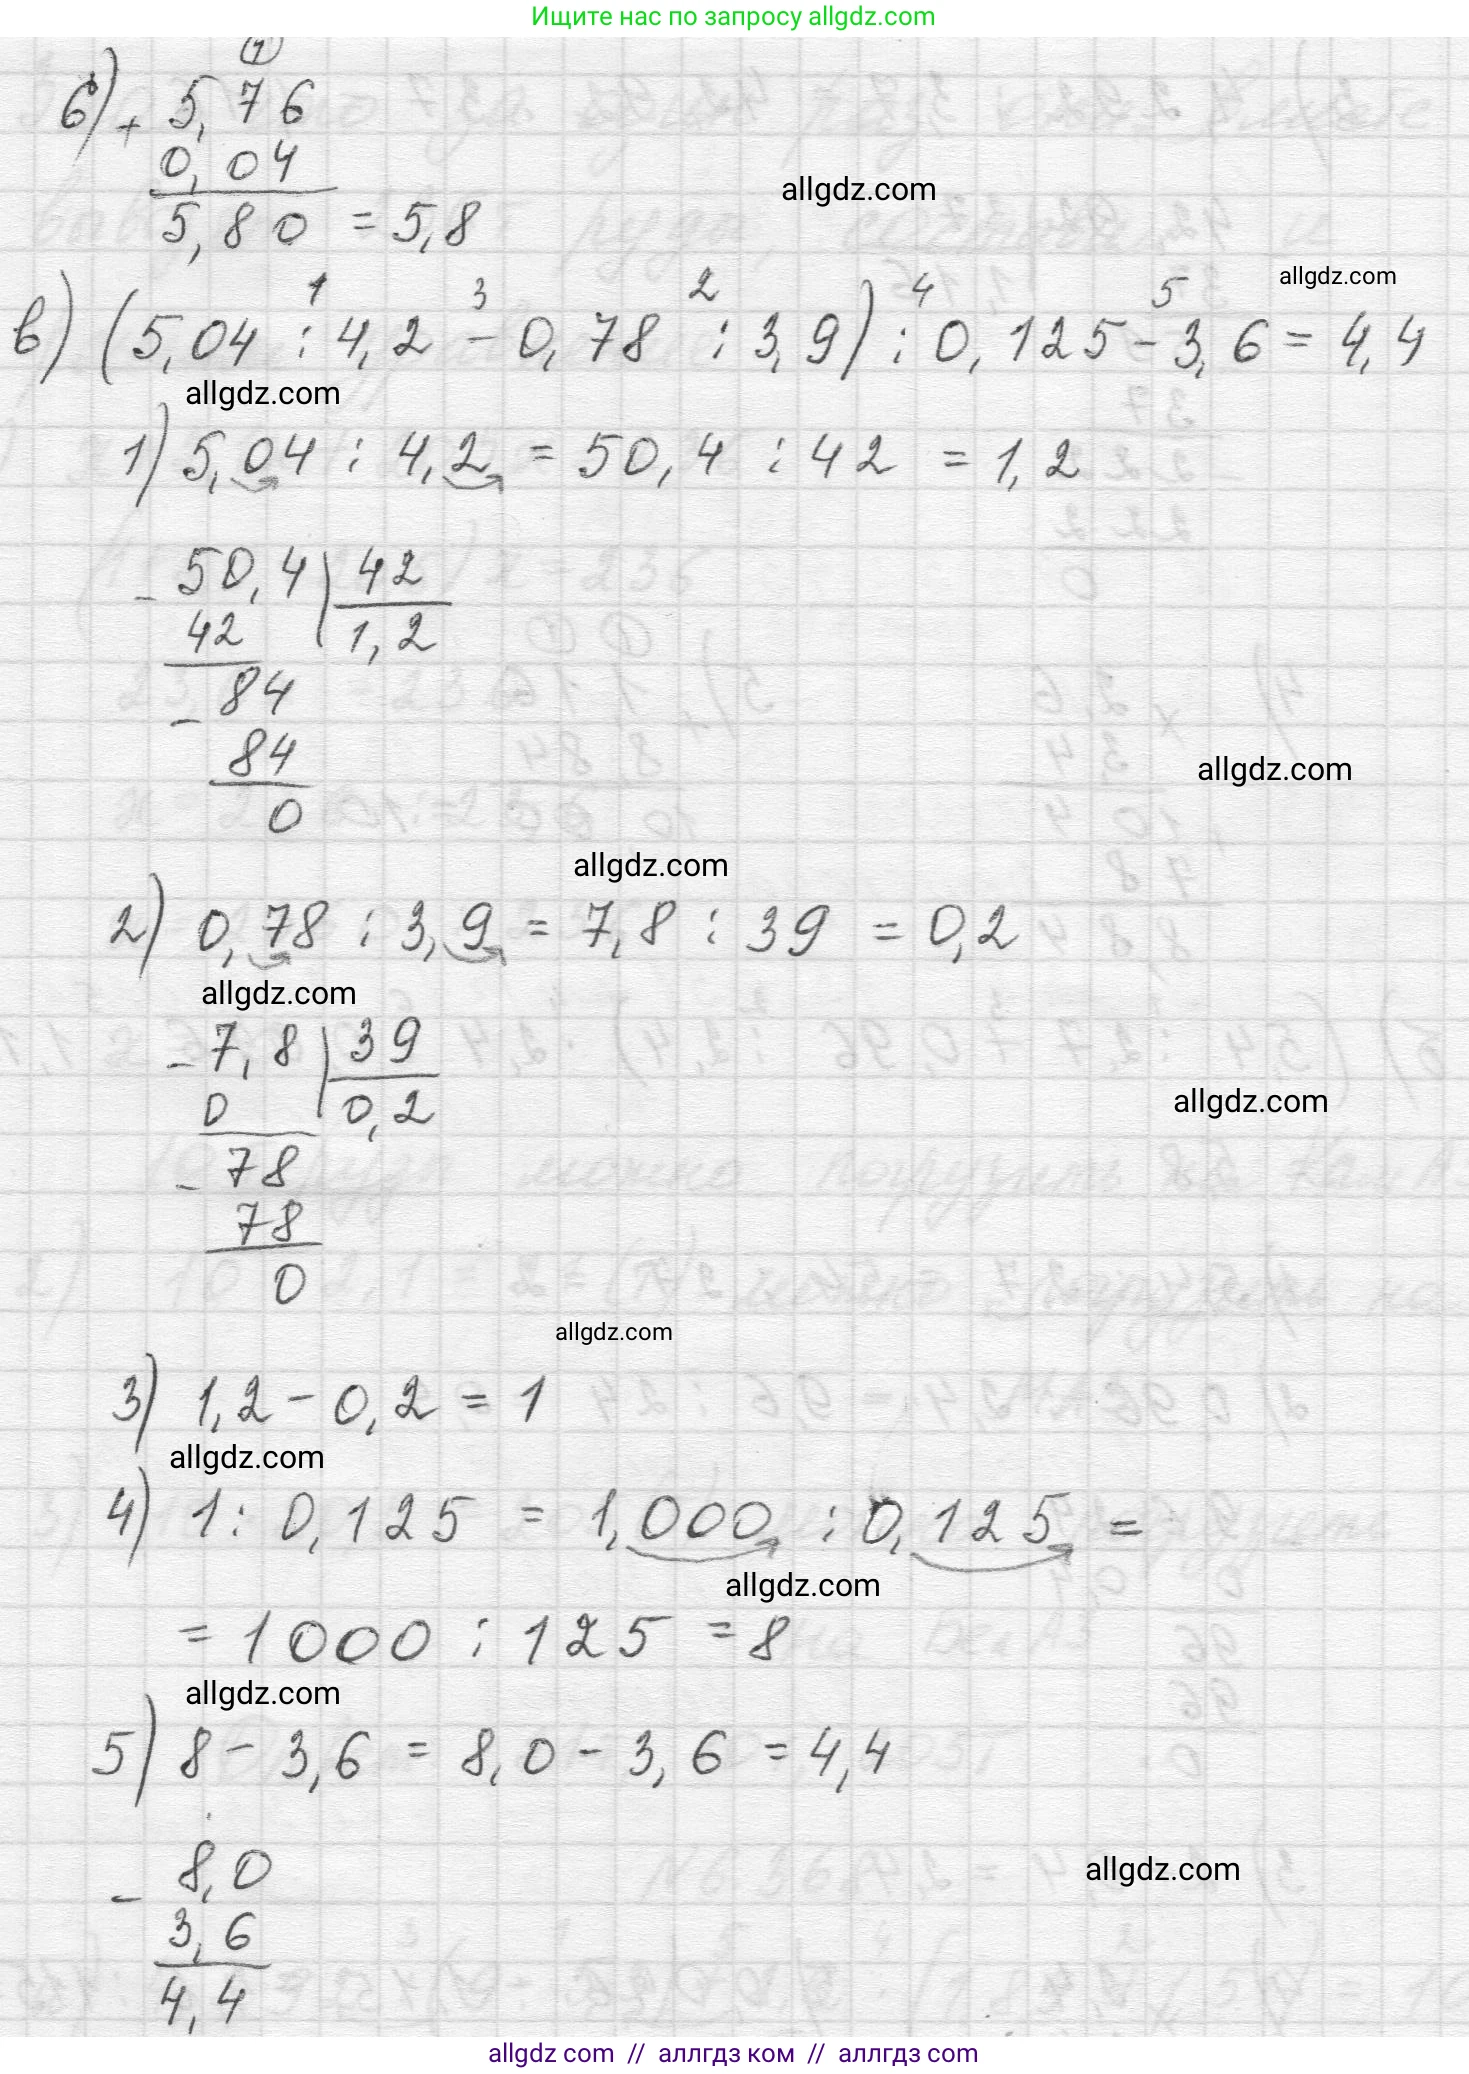 Ищите нас по запросу allgdz.com
1
6) + 5,76
0,04
5,80 = 5,8
allgdz.com
1 3 2 4 5
allgdz.com
в) (5,04 : 4,2 - 0,78 : 3,9) : 0,125 - 3,6 = 4,4
allgdz.com
1) 5,04 : 4,2 = 50,4 : 42 = 1,2
- 50,4 | 42
42 1,2
- 84
84
allgdz.com
0
allgdz.com
2) 0,78 : 3,9 = 7,8 : 39 = 0,2
allgdz.com
- 7,8 | 39
0 0,2
allgdz.com
- 78
78
0
allgdz.com
3) 1,2 - 0,2 = 1
allgdz.com
4) 1 : 0,125 = 1,000 : 0,125 =
allgdz.com
= 1000 : 125 = 8
allgdz.com
5) 8 - 3,6 = 8,0 - 3,6 = 4,4
- 8,0
allgdz.com
3,6
4,4
allgdz com // аллгдз ком // аллгдз com